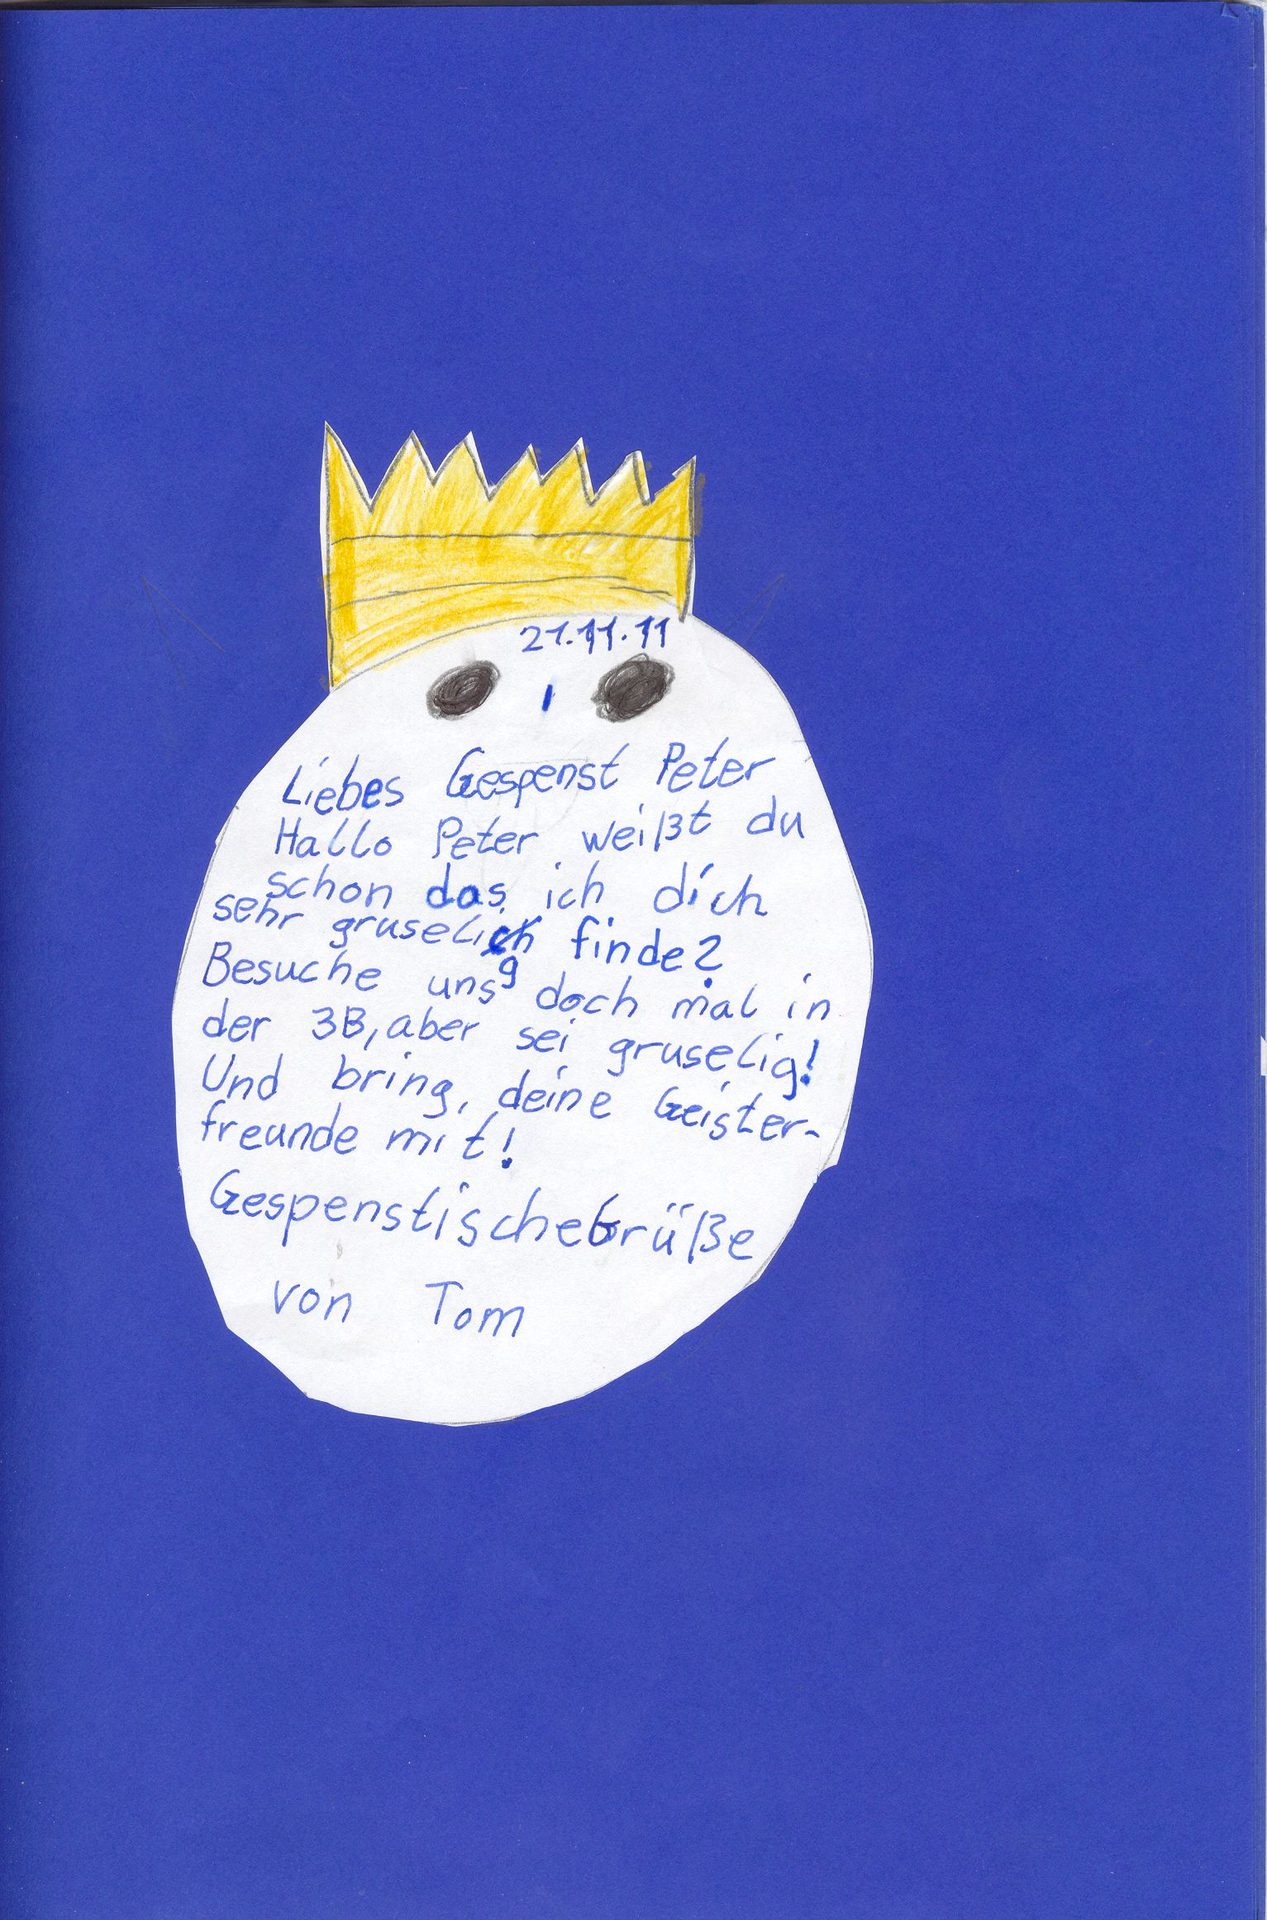 21.11.11
Liebes Gespenst Peter
Hallo Peter weißt du
schon das ich dich
sehr gruselig finde?
Besuche uns doch mal in
der 3B, aber sei gruselig!
Und bring, deine Geister-
freunde mit!
GespenstischeGrüße
von Tom